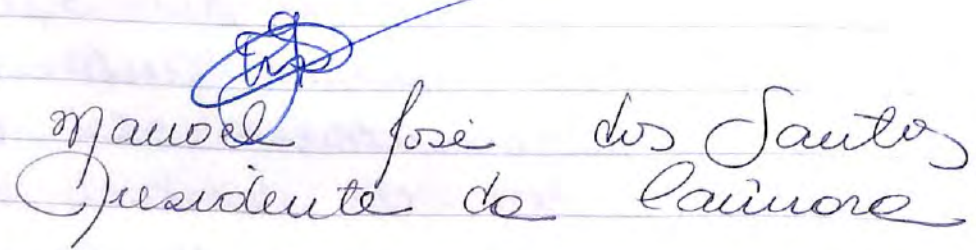 Manoel José dos Santos
Presidente da Câmara